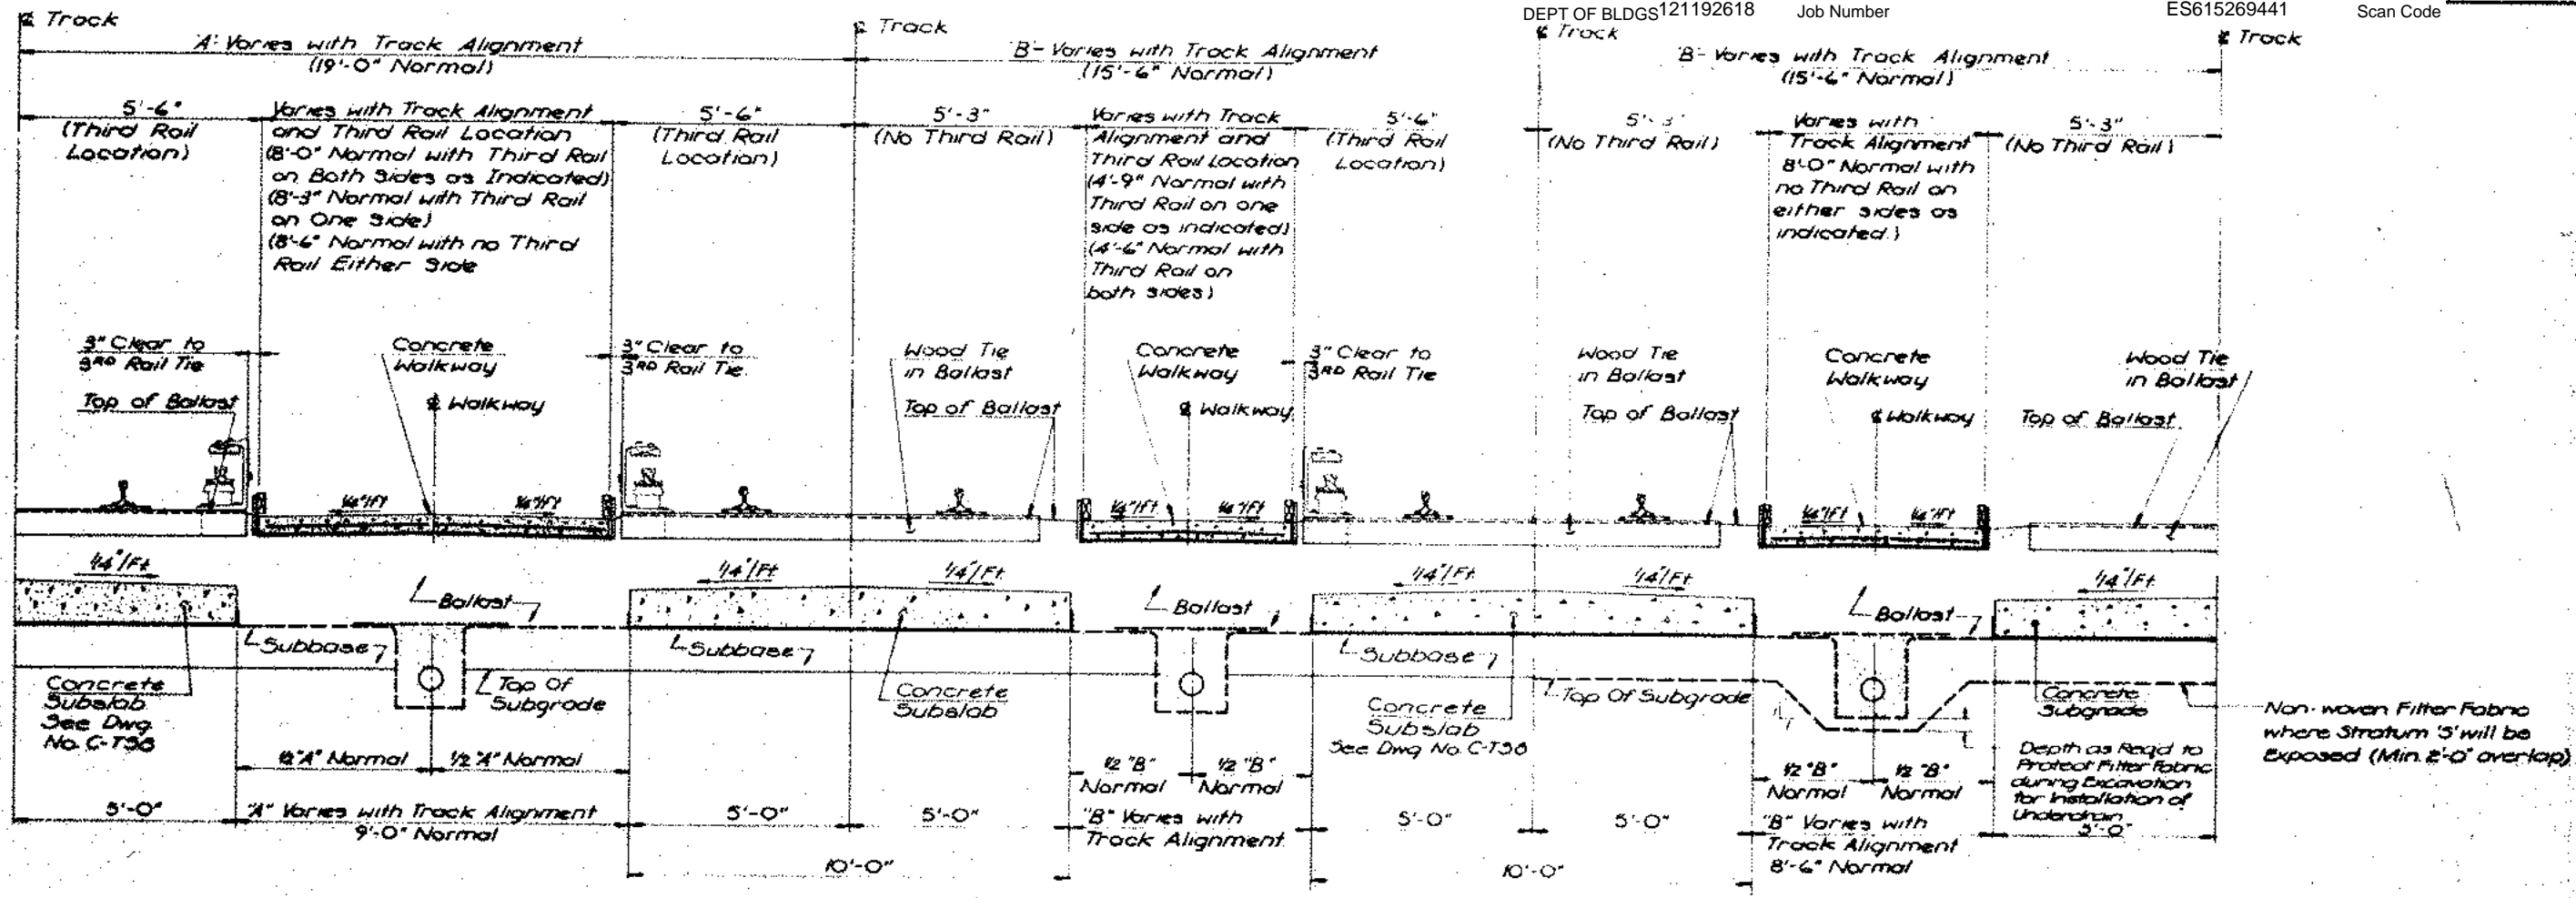 DEPT OF BLDGS 121192618 Job Number ES615269441 Scan Code
℄ Track
℄ Track
℄ Track
℄ Track
'A'- Varies with Track Alignment
(19'-0" Normal)
'B'- Varies with Track Alignment
(15'-6" Normal)
'B'- Varies with Track Alignment
(15'-6" Normal)
5'-6"
(Third Rail
Location)
Varies with Track Alignment
and Third Rail Location
(8'-0" Normal with Third Rail
on Both Sides as Indicated)
(8'-3" Normal with Third Rail
on One Side)
(8'-6" Normal with no Third
Rail Either Side
5'-6"
(Third Rail
Location)
5'-3"
(No Third Rail)
Varies with Track
Alignment and
Third Rail Location
(4'-9" Normal with
Third Rail on one
side as indicated)
(4'-6" Normal with
Third Rail on
both sides)
5'-6"
(Third Rail
Location)
5'-3"
(No Third Rail)
Varies with
Track Alignment
8'-0" Normal with
no Third Rail on
either sides as
indicated.)
5'-3"
(No Third Rail)
3" Clear to
3RD Rail Tie
Top of Ballast
Concrete
Walkway
℄ Walkway
3" Clear to
3RD Rail Tie
Wood Tie
in Ballast
Top of Ballast
Concrete
Walkway
℄ Walkway
3" Clear to
3RD Rail Tie
Wood Tie
in Ballast
Top of Ballast
Concrete
Walkway
℄ Walkway
Wood Tie
in Ballast
Top of Ballast
1/4"/Ft
1/4"/Ft
1/4"/Ft
1/4"/Ft
1/4"/Ft
1/4"/Ft
1/4"/Ft
1/4"/Ft
1/4"/Ft
1/4"/Ft
1/4"/Ft
1/4"/Ft
Ballast
Ballast
Ballast
Subbase
Subbase
Subbase
Concrete
Subslab
See Dwg
No. C-T38
Top Of
Subgrade
Concrete
Subslab
Concrete
Subslab
See Dwg No. C-T38
Top Of Subgrade
Concrete
Subgrade
Non-woven Filter Fabric
where Stratum 'S' will be
Exposed (Min. 2'-0" overlap)
Depth as Reqd to
Protect Filter Fabric
during Excavation
for Installation of
Underdrain
1/2 "A" Normal
1/2 "A" Normal
1/2 "B"
Normal
1/2 "B"
Normal
1/2 "B"
Normal
1/2 "B"
Normal
5'-0"
"A" Varies with Track Alignment
9'-0" Normal
5'-0"
5'-0"
"B" Varies with
Track Alignment
5'-0"
5'-0"
"B" Varies with
Track Alignment
8'-6" Normal
5'-0"
10'-0"
10'-0"